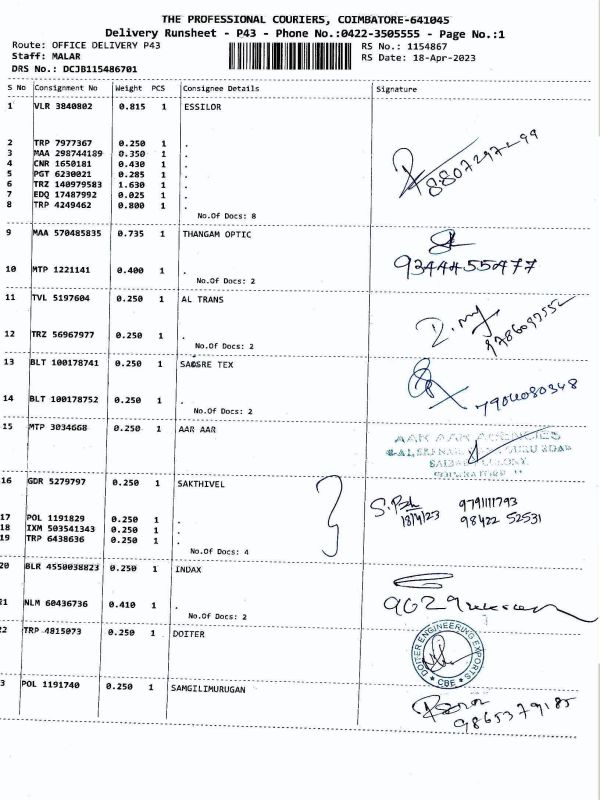 THE PROFESSIONAL COURIERS, COIMBATORE-641045
Delivery Runsheet - P43 - Phone No.:0422-3505555 - Page No.:1
Route: OFFICE DELIVERY P43
RS No.: 1154867
Staff: MALAR
RS Date: 18-Apr-2023
DRS No.: DCJB115486701
S No Consignment No Weight PCS Consignee Details Signature
1 VLR 3840802 0.815 1 ESSILOR
2 TRP 7977367 0.250 1 .
3 MAA 298744189 0.350 1 .
4 CNR 1650181 0.430 1 .
5 PGT 6230021 0.285 1 .
6 TRZ 140979583 1.630 1 .
7 EDQ 17487992 0.025 1 .
8 TRP 4249462 0.800 1 .
No.Of Docs: 8
9 MAA 570485835 0.735 1 THANGAM OPTIC
10 MTP 1221141 0.400 1 .
9344455477
No.Of Docs: 2
11 TVL 5197604 0.250 1 AL TRANS
12 TRZ 56967977 0.250 1 .
No.Of Docs: 2
13 BLT 100178741 0.250 1 SAOSRE TEX
14 BLT 100178752 0.250 1 .
7904080348
No.Of Docs: 2
15 MTP 3034668 0.250 1 AAR AAR
AAR AAR AGENCIES
16 GDR 5279797 0.250 1 SAKTHIVEL
9791111793
18/4/23
98422 52531
17 POL 1191829 0.250 1 .
18 IXM 503541343 0.250 1 .
19 TRP 6438636 0.250 1 .
No.Of Docs: 4
20 BLR 4550038823 0.250 1 INDAX
21 NLM 60436736 0.410 1 .
No.Of Docs: 2
22 TRP 4815073 0.250 1 DOITER
DOITER ENGINEERING EXPORTS
★ CBE ★
3 POL 1191740 0.250 1 SAMGILIMURUGAN
9865379185